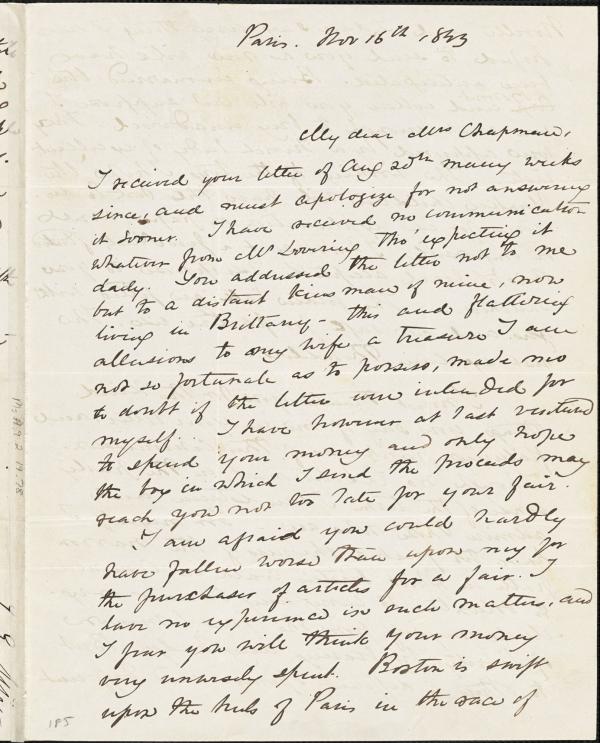 Paris. Nov 16th 1843
My dear Mrs Chapman,
I received your letter of Aug 20th many weeks
since, and must apologize for not answering
it sooner. I have received no communication
whatever from Mr Lovering tho' expecting it
daily. You addressed the letter not to me
but to a distant kinsman of mine, now
living in Brittany - this and flattering
allusions to my wife a treasure I am
not so fortunate as to possess, made me
to doubt if the letter were intended for
myself. I have however at last ventured
to spend your money and only hope
the box in which I send the proceeds may
reach you not too late for your fair.
I am afraid you could hardly
have fallen worse than upon me for
the purchaser of articles for a fair. I
have no experience in such matters, and
I fear you will think your money
very unwisely spent. Boston is swift
upon the heels of Paris in the race of
185